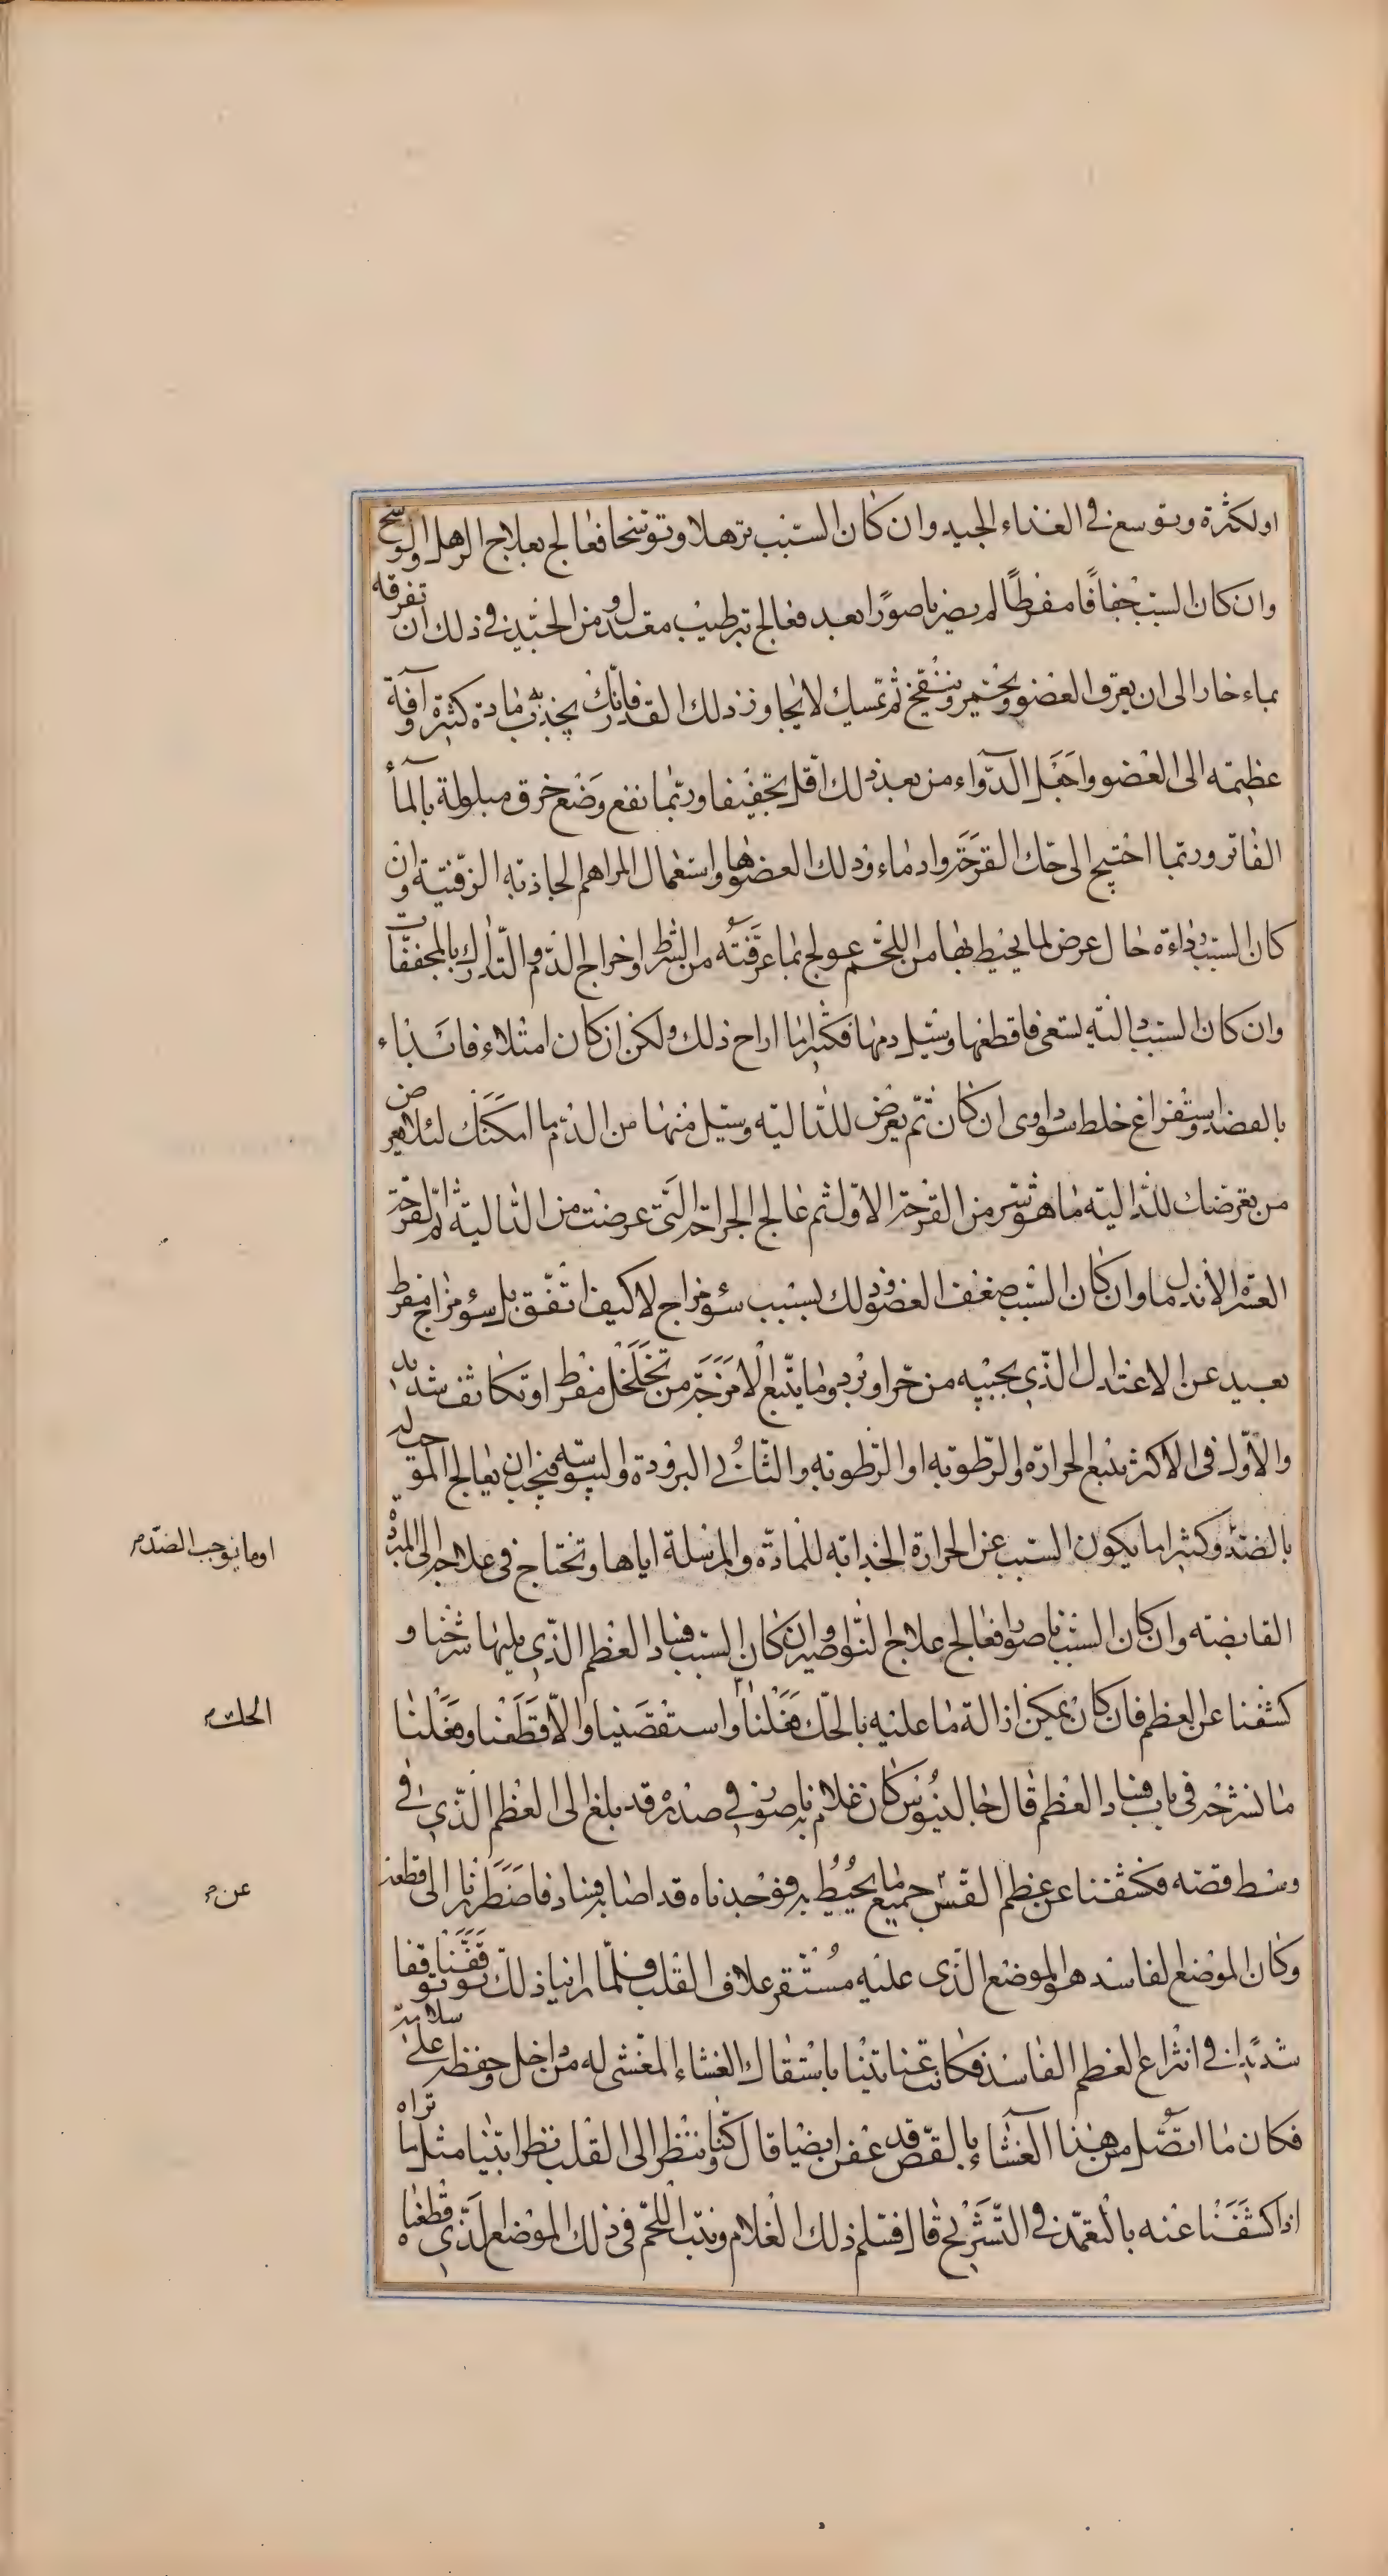 او لكثرة وتوسع في الغذاء الجيد وان كان السبب ترهلا وتوسخا فعالج بعلاج الرهل والوسخ
وان كان السبب جفافًا مفرطًا لم يصر ناصورًا بعد فعالج بترطيب معتدل ومن الجيد في ذلك ان تفرقه
بماء حار الى ان يعرق العضو ويحمر وينتفخ ثم تمسك لا يجاوز ذلك القدر فانك تجذب به مادة كثيرة وآفة
عظيمة الى العضو واجعل الدواء من بعد ذلك اقل تجفيفا وربما نفع وضع خرق مبلولة بالماء
الفاتر وربما احتيج الى حك القرحة وادماء ذلك العضو واستعمال المراهم الجاذبة الزفتية وان
كان السبب رداءة حال عرض لما يحيط بها من اللحم عولج بما عرفته من الشرط واخراج الدم والتدارك بالمجففات
وان كان السبب دالية تسعى فاقطعها وسيل دمها فكثيرا ما اراح ذلك ولكن ان كان امتلاء فابداء
بالفصد واستفراغ خلط سوداوى ان كان ثم تعرض للدالية وسيل منها من الدم ما امكنك لئلا يعرض
من تعرضك للدالية ما هو شر من القرحة الاولى ثم عالج الجراحة التي عرضت من الدالية ثم القرحة
العسرة الاندمال وان كان السبب ضعف العضو وذلك بسبب سوء مزاج لا كيف اتفق بل سوء مزاج مفرط
بعيد عن الاعتدال الذي بحسبه من حر او برد وما يتبع الامزجة من تخلخل مفرط او تكاثف شديد
والاول في الاكثر يتبع الحرارة والرطوبة او الرطوبة والثاني البرودة واليبوسة فيجب ان يعالج الموجب له
بالضد وكثيرا ما يكون السبب عن الحرارة الجذابة للمادة والمرسلة اياها وتحتاج في علاجه الى المبردة
اوما يوجب الضد
القابضة وان كان السبب ناصورا فعالج علاج النواصير وان كان السبب فساد العظم الذي يليها شرحنا و
كشفنا عن العظم فان كان يمكن ازالة ما عليه بالحك فعلنا واستقصينا والا قطعنا وفعلنا
الحك
ما نشرحه في باب فساد العظم قال جالينوس كان غلام به ناصور في صدره قد بلغ الى العظم الذي في
وسط قصه فكشفنا عن عظم القس جميع ما يحيط به فوجدناه قد اصابه فساد فاضطررنا الى قطعه
عن
وكان الموضع الفاسد هو الموضع الذي عليه مستقر علاف القلب فلما راينا ذلك توقفنا توقفا
شديدا في انتزاع العظم الفاسد فكانت عنايتنا باستبقاء الغشاء المغشي له من داخل وحفظه على سلامته
فكان ما اتصل من هذا الغشاء بالقص قد عفن ايضا قال وكنا ننظر الى القلب نظرا بينا مثل ما تراه
اذا كشفنا عنه بالتعمد في التشريح قال فسلم ذلك الغلام ونبت اللحم في ذلك الموضع الذي قطعناه